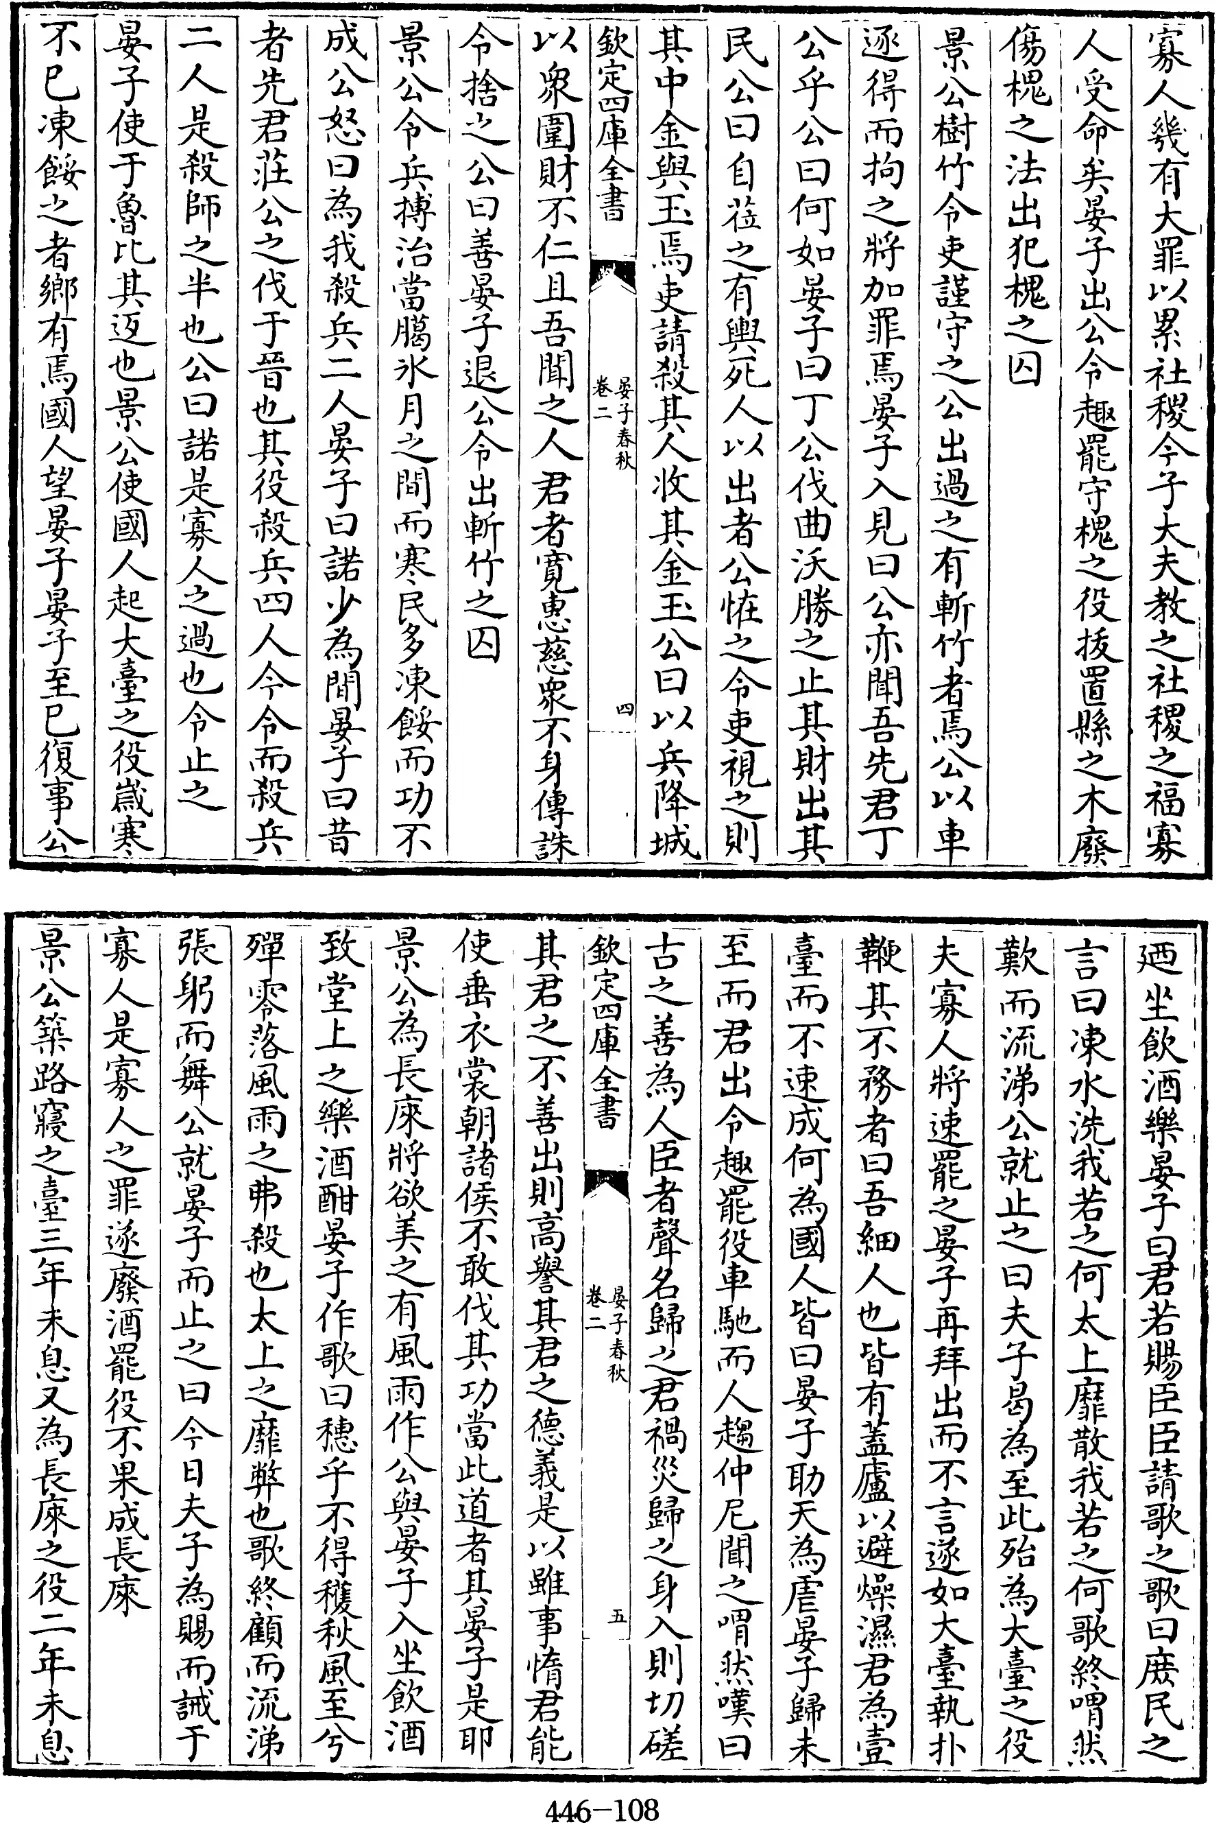 寡人幾有大罪以累社稷今子大夫教之社稷之福寡
人受命矣晏子出公令趣罷守槐之役拔置縣之木廢
傷槐之法出犯槐之囚
景公樹竹令吏謹守之公出過之有斬竹者焉公以車
逐得而拘之將加罪焉晏子入見曰公亦聞吾先君丁
公乎公曰何如晏子曰丁公伐曲沃勝之止其財出其
民公曰自莅之有輿死人以出者公怪之令吏視之則
其中金與玉焉吏請殺其人收其金玉公曰以兵降城
欽定四庫全書
晏子春秋
卷二
四
以衆圍財不仁且吾聞之人君者寛惠慈衆不身傳誅
令捨之公曰善晏子退公令出斬竹之囚
景公令兵摶治當臈氷月之間而寒民多凍餒而功不
成公怒曰為我殺兵二人晏子曰諾少為間晏子曰昔
者先君莊公之伐于晉也其役殺兵四人今令而殺兵
二人是殺師之半也公曰諾是寡人之過也令止之
晏子使于魯比其返也景公使國人起大臺之役歲寒
不已凍餒之者鄉有焉國人望晏子晏子至已復事公
廼坐飲酒樂晏子曰君若賜臣臣請歌之歌曰庶民之
言曰凍水洗我若之何太上靡散我若之何歌終喟然
歎而流涕公就止之曰夫子曷為至此殆為大臺之役
夫寡人將速罷之晏子再拜出而不言遂如大臺執扑
鞭其不務者曰吾細人也皆有蓋廬以避燥濕君為壹
臺而不速成何為國人皆曰晏子助天為虐晏子歸未
至而君出令趣罷役車馳而人趨仲尼聞之喟然嘆曰
古之善為人臣者聲名歸之君禍災歸之身入則切磋
欽定四庫全書
晏子春秋
卷二
五
其君之不善出則高譽其君之德義是以雖事惰君能
使垂衣裳朝諸侯不敢伐其功當此道者其晏子是耶
景公為長庲將欲美之有風雨作公與晏子入坐飲酒
致堂上之樂酒酣晏子作歌曰穗乎不得穫秋風至兮
殫零落風雨之弗殺也太上之靡弊也歌終顧而流涕
張躬而舞公就晏子而止之曰今日夫子為賜而誡于
寡人是寡人之罪遂廢酒罷役不果成長庲
景公築路寢之臺三年未息又為長庲之役二年未息
446-108